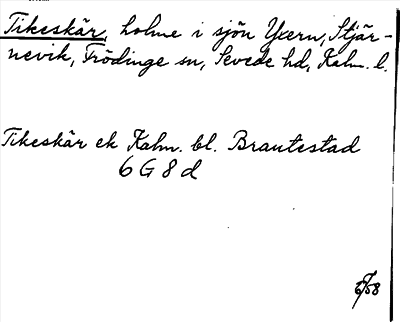 Tikeskär, holme i sjön Yxern, Stjär-
nevik, Frödinge sn, Sevede hd, Kalm. l.
Tikeskär ek Kalm. bl. Brantestad
6 G 8 d